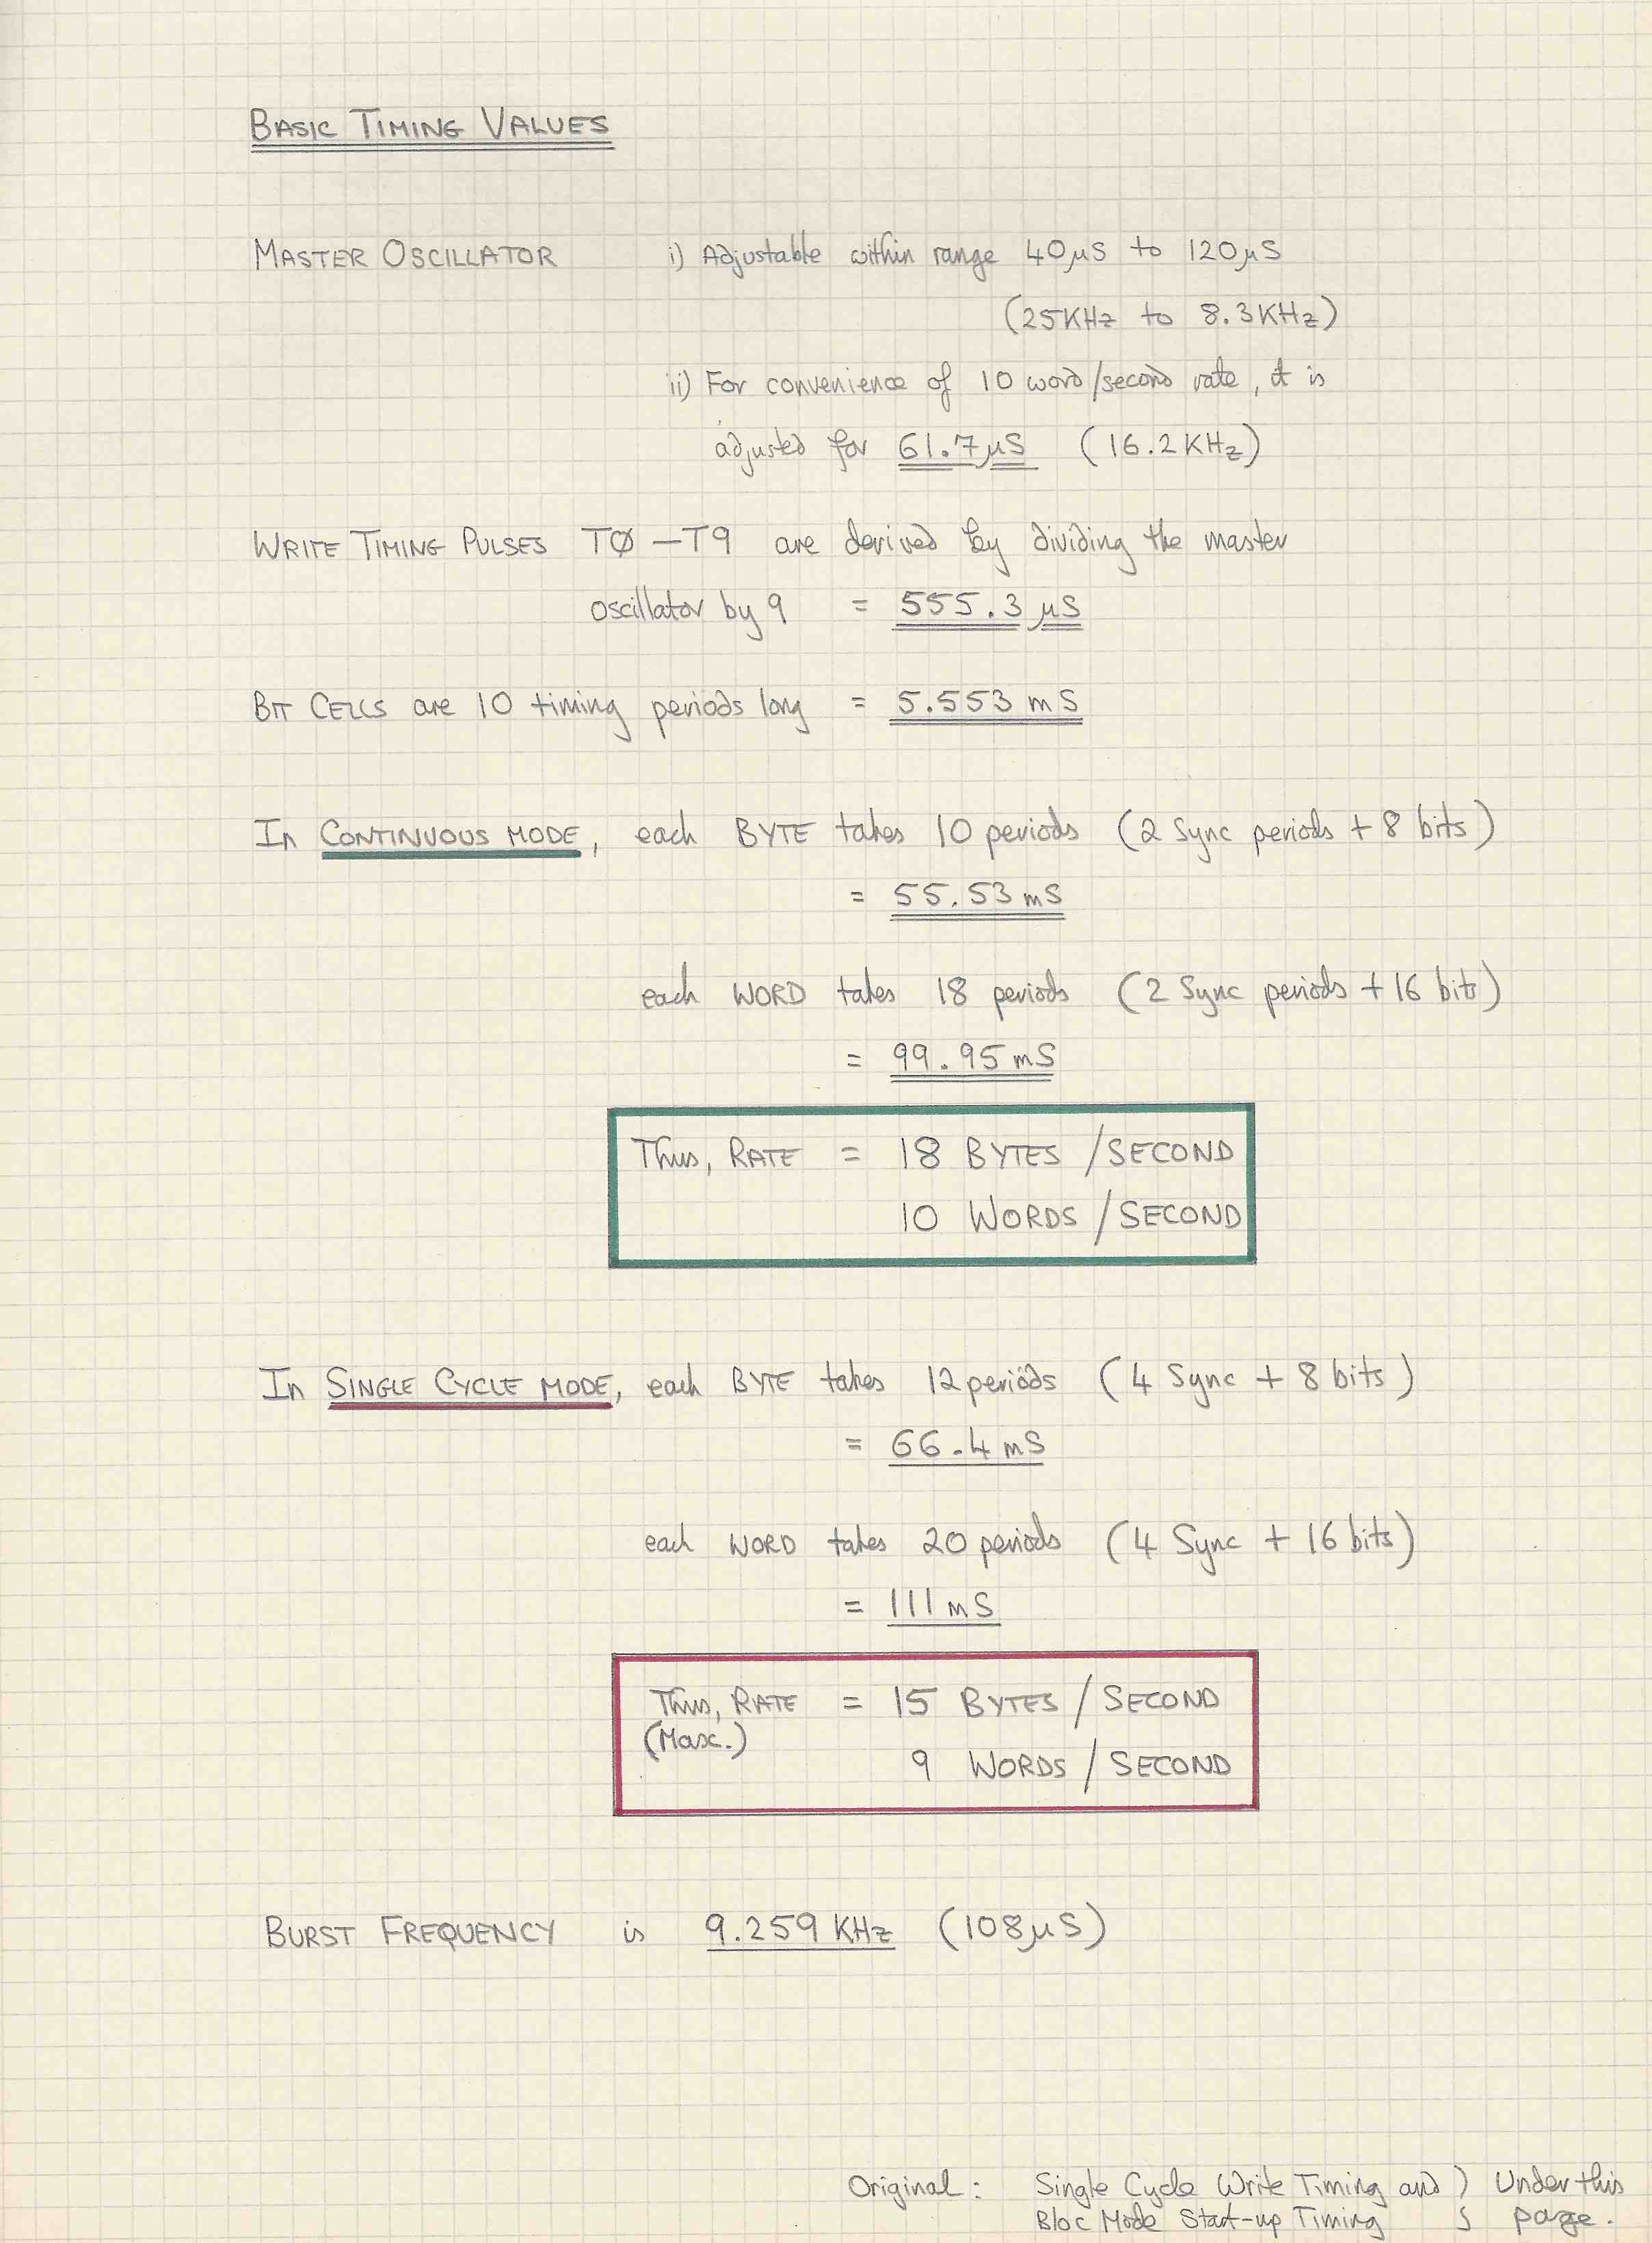 BASIC TIMING VALUES
MASTER OSCILLATOR i) Adjustable within range 40µS to 120µS
(25KHz to 8.3KHz)
ii) For convenience of 10 word/second rate, it is
adjusted for 61.7µS (16.2KHz)
WRITE TIMING PULSES TØ–T9 are derived by dividing the master
oscillator by 9 = 555.3 µS
BIT CELLS are 10 timing periods long = 5.553 mS
In CONTINUOUS MODE, each BYTE takes 10 periods (2 Sync periods + 8 bits)
= 55.53mS
each WORD takes 18 periods (2 Sync periods + 16 bits)
= 99.95mS
Thus, RATE = 18 BYTES /SECOND
10 WORDS /SECOND
In SINGLE CYCLE MODE, each BYTE takes 12 periods (4 Sync + 8 bits)
= 66.4mS
each WORD takes 20 periods (4 Sync + 16 bits)
= 111mS
Thus, RATE = 15 BYTES / SECOND
(Max.)
9 WORDS / SECOND
BURST FREQUENCY is 9.259 KHz (108µS)
Original: Single Cycle Write Timing and } Under this
Bloc Mode Start-up Timing page.